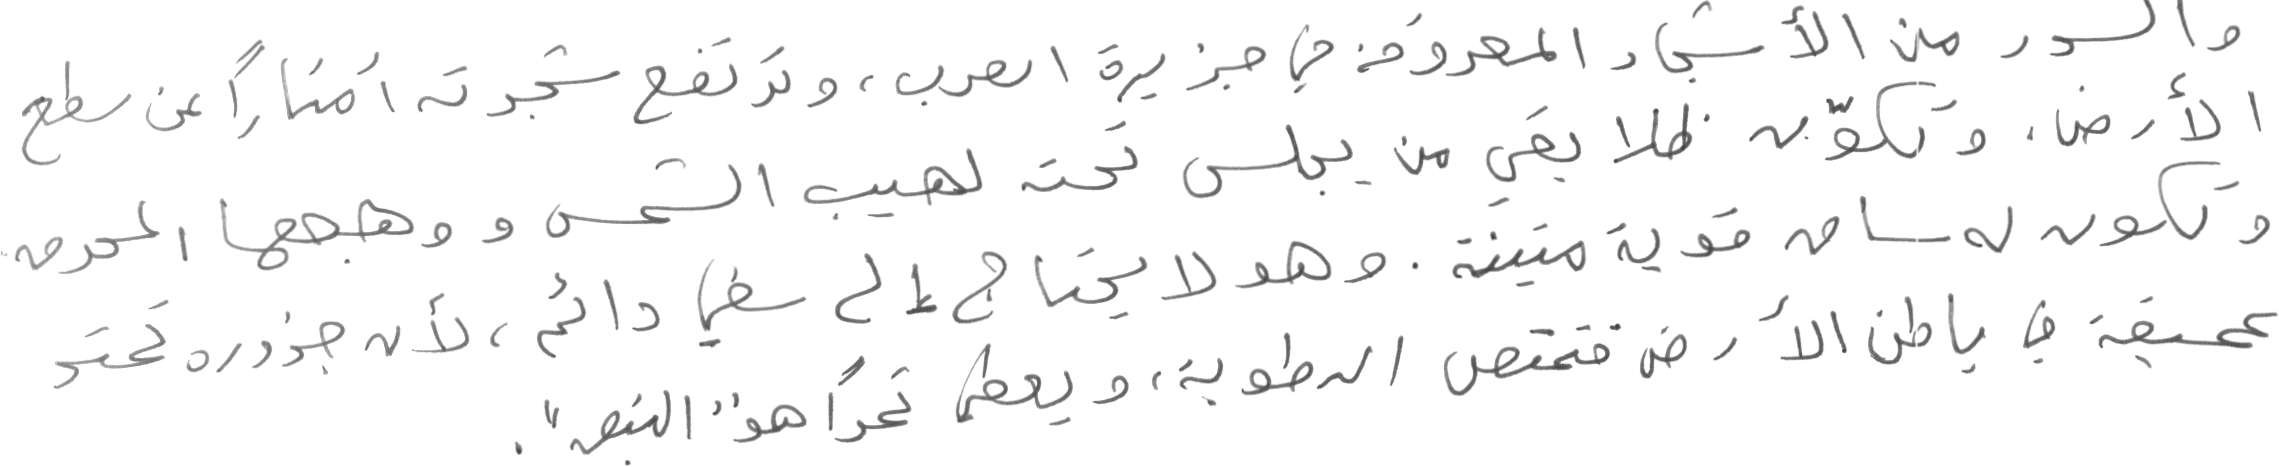 والسدر من الأشجار المعروفة في جزيرة العرب، وترتفع شجرته أمتاراً عن سطح
الأرض، وتكوّن ظلا يقي من يجلس تحته لهيب الشمس ووهجها المحرق.
وتكون له ساق قوية متينة. وهو لا يحتاج إلى سقي دائم، لأن جذوره تمتد
عميقة في باطن الأرض فتمتص الرطوبة، ويعطي ثمراً هو "النبق".